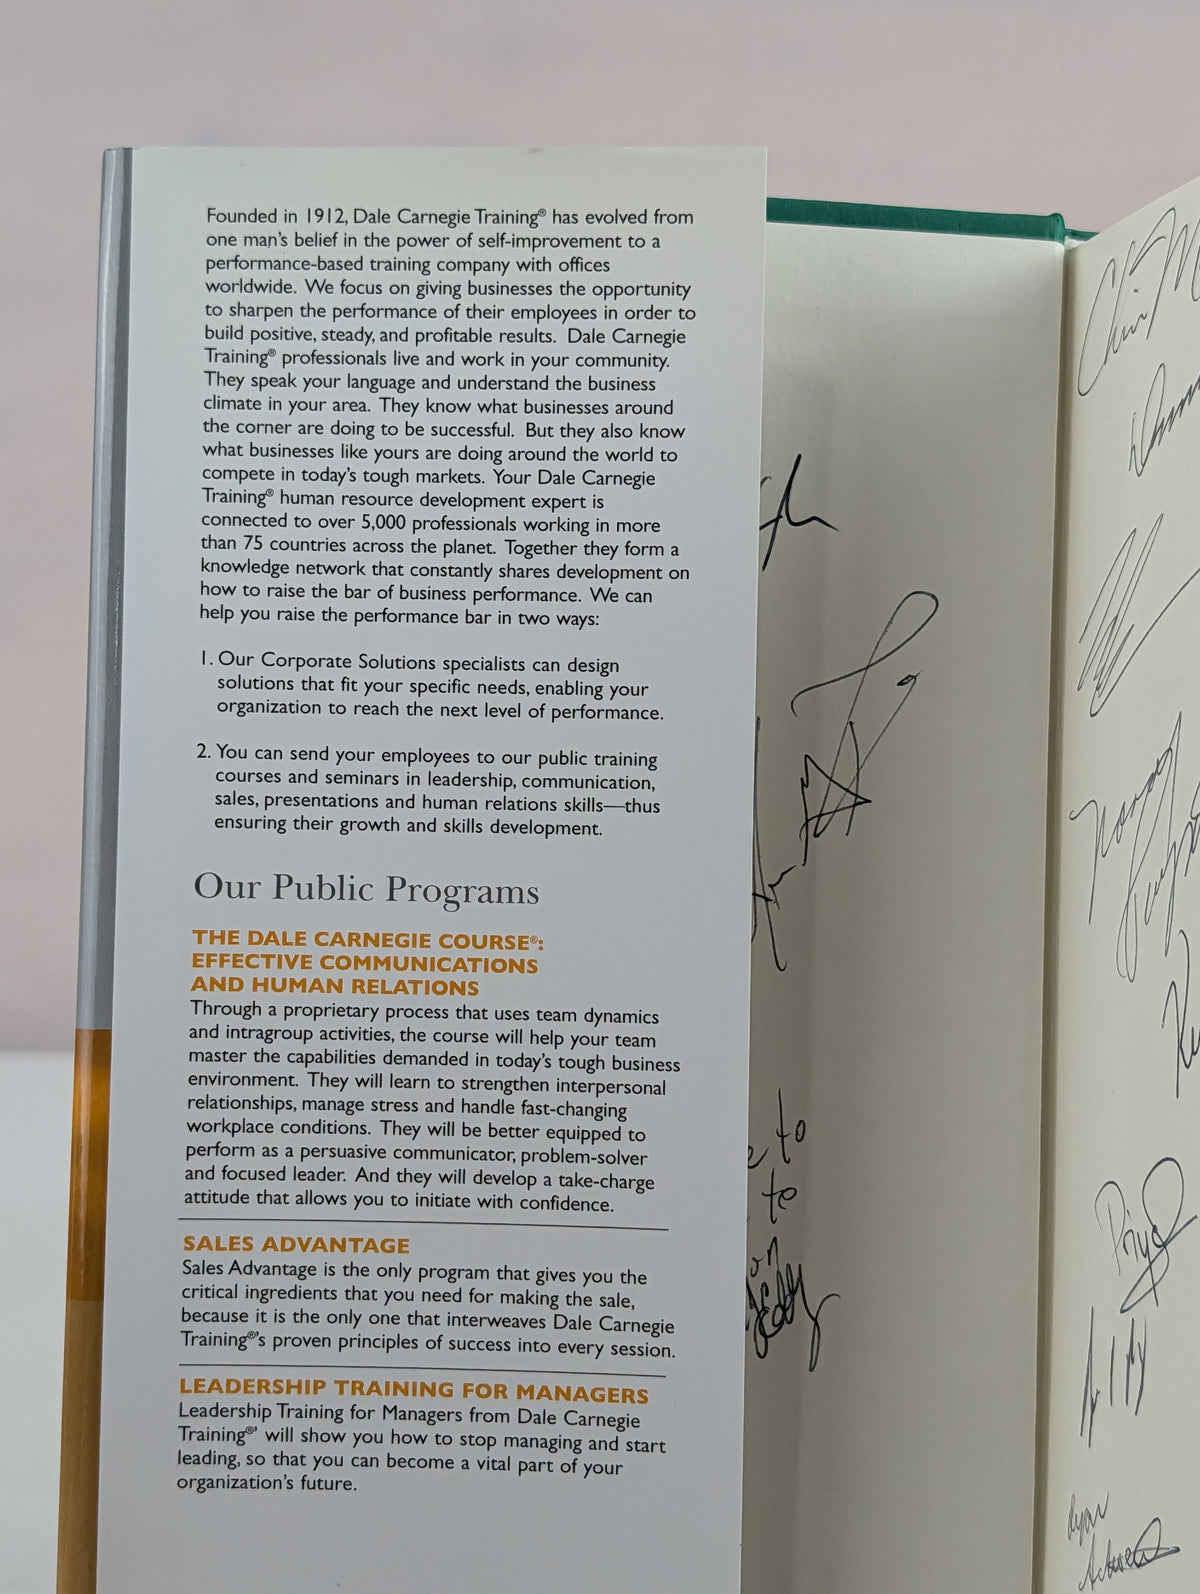 Founded in 1912, Dale Carnegie Training® has evolved from
one man's belief in the power of self-improvement to a
performance-based training company with offices
worldwide. We focus on giving businesses the opportunity
to sharpen the performance of their employees in order to
build positive, steady, and profitable results. Dale Carnegie
Training® professionals live and work in your community.
They speak your language and understand the business
climate in your area. They know what businesses around
the corner are doing to be successful. But they also know
what businesses like yours are doing around the world to
compete in today's tough markets. Your Dale Carnegie
Training® human resource development expert is
connected to over 5,000 professionals working in more
than 75 countries across the planet. Together they form a
knowledge network that constantly shares development on
how to raise the bar of business performance. We can
help you raise the performance bar in two ways:
1. Our Corporate Solutions specialists can design
solutions that fit your specific needs, enabling your
organization to reach the next level of performance.
2. You can send your employees to our public training
courses and seminars in leadership, communication,
sales, presentations and human relations skills—thus
ensuring their growth and skills development.
Our Public Programs
THE DALE CARNEGIE COURSE®:
EFFECTIVE COMMUNICATIONS
AND HUMAN RELATIONS
Through a proprietary process that uses team dynamics
and intragroup activities, the course will help your team
master the capabilities demanded in today's tough business
environment. They will learn to strengthen interpersonal
relationships, manage stress and handle fast-changing
workplace conditions. They will be better equipped to
perform as a persuasive communicator, problem-solver
and focused leader. And they will develop a take-charge
attitude that allows you to initiate with confidence.
SALES ADVANTAGE
Sales Advantage is the only program that gives you the
critical ingredients that you need for making the sale,
because it is the only one that interweaves Dale Carnegie
Training®'s proven principles of success into every session.
LEADERSHIP TRAINING FOR MANAGERS
Leadership Training for Managers from Dale Carnegie
Training®' will show you how to stop managing and start
leading, so that you can become a vital part of your
organization's future.
to
to
on
Ryan